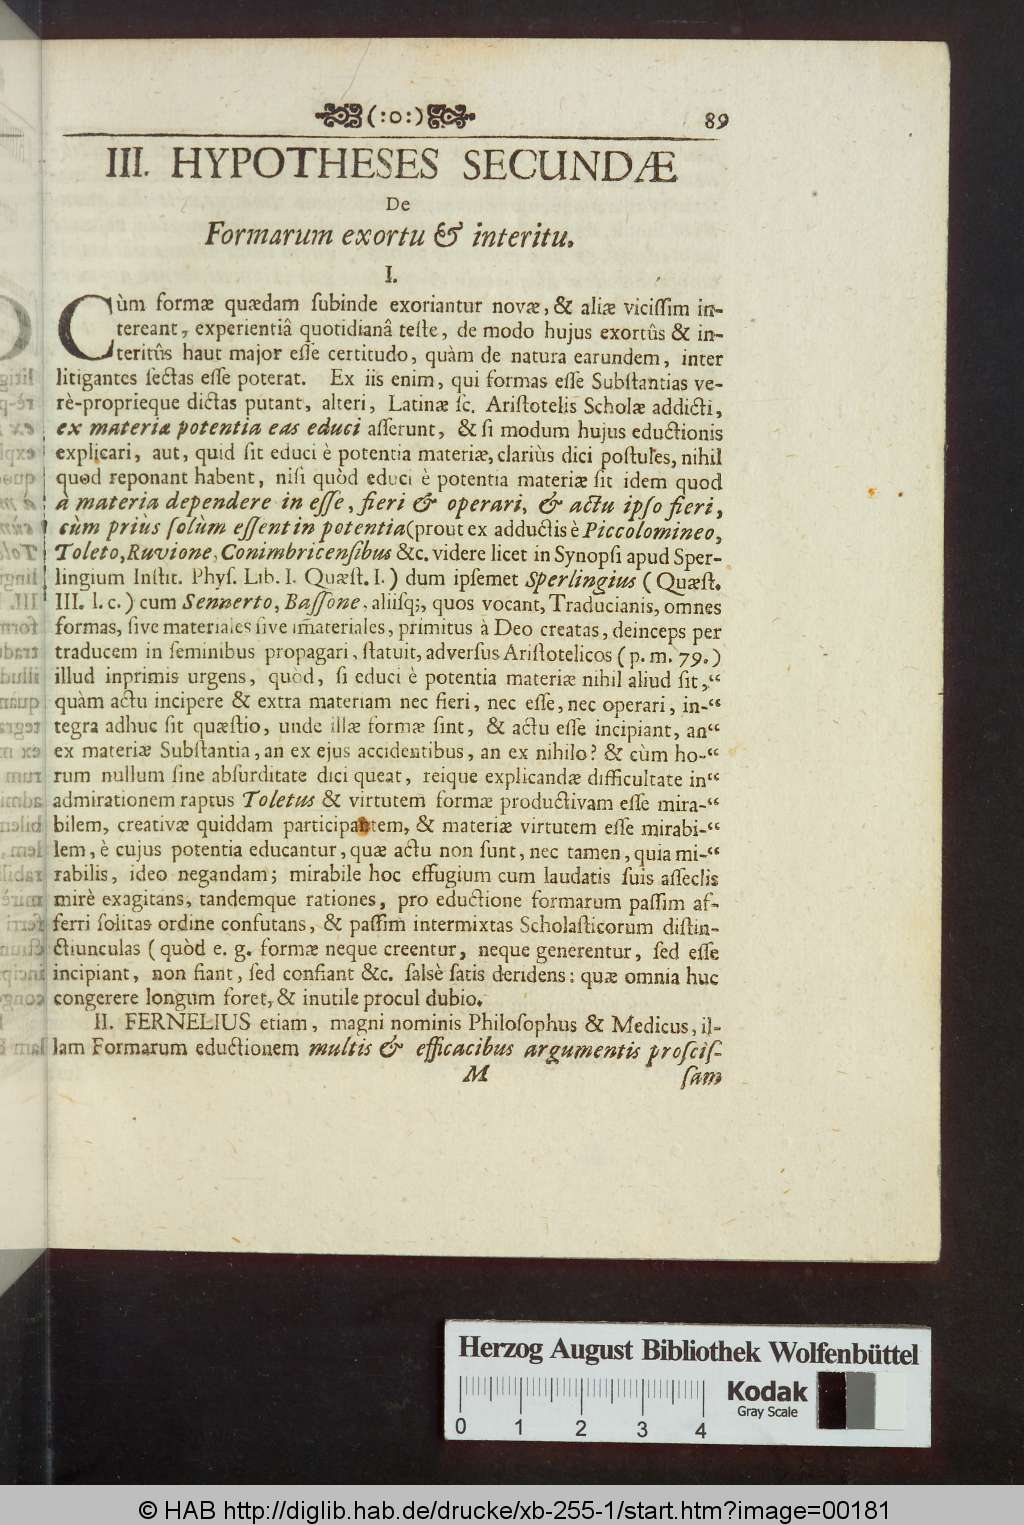 (:o:) 89
III. HYPOTHESES SECUNDÆ
De
Formarum exortu & interitu.
I.
Cùm formæ quædam ſubinde exoriantur novæ, & aliæ viciſſim in-
tereant, experientiâ quotidianâ teſte, de modo hujus exortûs & in-
teritûs haut major eſſe certitudo, quàm de natura earundem, inter
litigantes ſectas eſſe poterat. Ex iis enim, qui formas eſſe Subſtantias ve-
rè-proprieque dictas putant, alteri, Latinæ ſc. Ariſtotelis Scholæ addicti,
ex materiæ potentia eas educi aſſerunt, & ſi modum hujus eductionis
explicari, aut, quid ſit educi è potentia materiæ, clariùs dici poſtules, nihil
quod reponant habent, niſi quòd educi è potentia materiæ ſit idem quod
à materia dependere in eſſe, fieri & operari, & actu ipſo fieri,
cùm priùs ſolùm eſſent in potentia (prout ex adductis è Piccolomineo,
Toleto, Ruvione, Conimbricenſibus &c. videre licet in Synopſi apud Sper-
lingium Inſtit. Phyſ. Lib. I. Quæſt. I.) dum ipſemet Sperlingius (Quæſt.
III. l. c.) cum Sennerto, Baſſone, aliiſq;, quos vocant, Traducianis, omnes
formas, ſive materiales ſive im̃ateriales, primitus à Deo creatas, deinceps per
traducem in ſeminibus propagari, ſtatuit, adverſus Ariſtotelicos (p. m. 79.)
illud inprimis urgens, quòd, ſi educi è potentia materiæ nihil aliud ſit,“
quàm actu incipere & extra materiam nec fieri, nec eſſe, nec operari, in-“
tegra adhuc ſit quæſtio, unde illæ formæ ſint, & actu eſſe incipiant, an“
ex materiæ Subſtantia, an ex ejus accidentibus, an ex nihilo? & cùm ho-“
rum nullum ſine abſurditate dici queat, reique explicandæ difficultate in“
admirationem raptus Toletus & virtutem formæ productivam eſſe mira-“
bilem, creativæ quiddam participantem, & materiæ virtutem eſſe mirabi-“
lem, è cujus potentia educantur, quæ actu non ſunt, nec tamen, quia mi-“
rabilis, ideo negandam; mirabile hoc effugium cum laudatis ſuis aſſeclis
mirè exagitans, tandemque rationes, pro eductione formarum paſſim af-
ferri ſolitas ordine confutans, & paſſim intermixtas Scholaſticorum diſtin-
ctiunculas (quòd e. g. formæ neque creentur, neque generentur, ſed eſſe
incipiant, non fiant, ſed confiant &c. falsè ſatis deridens: quæ omnia huc
congerere longum foret, & inutile procul dubio.
II. FERNELIUS etiam, magni nominis Philoſophus & Medicus, il-
lam Formarum eductionem multis & efficacibus argumentis proſciſ-
M ſam
Herzog August Bibliothek Wolfenbüttel
0 1 2 3 4
Kodak
Gray Scale
© HAB http://diglib.hab.de/drucke/xb-255-1/start.htm?image=00181